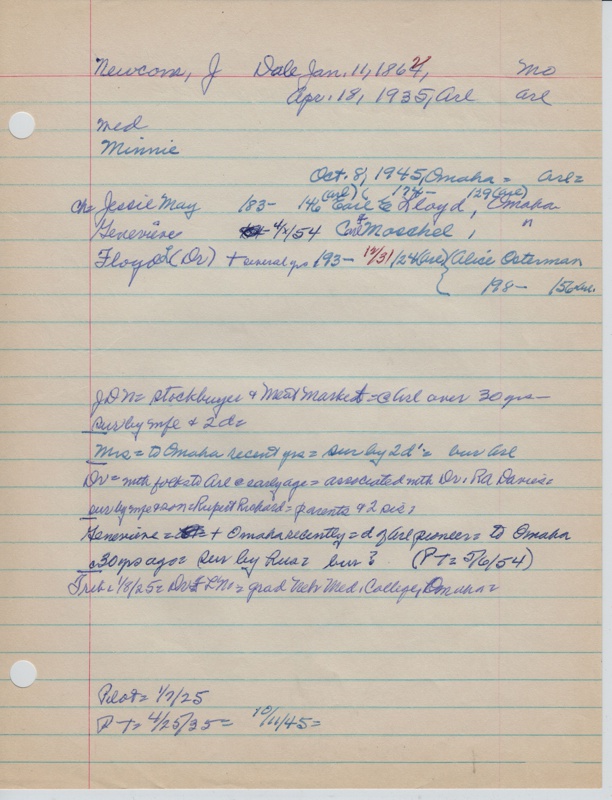 Newcom, J Dale Jan. 11, 1864, Mo
Apr. 18, 1935, Arl Arl
Med
Minnie
Oct. 8, 1945, Omaha = Arl=
(Arl) ( 174- 129 (Arl)
Ch= Jessie May 183- 146 Earl E Lloyd, Omaha
Genevieve 4/x/54 Carl Moschel, "
Floyd L (Dr) + several yrs 193- 12/31/24 (Arl) { Alice Osterman
198- 156 Arl.
J D N= stockbuyer & Meat Market = c Arl over 30 yrs-
sur by wife & 2 d=
Mrs = to Omaha recent yrs = sur by 2 d's = bur Arl
Dr = with folks to Arl @ early age = associated with Dr. RA Davies=
sur by wife & son = Rupert Richard = parents & 2 sis:
Genevieve = + Omaha recently = d of Arl pioneer = to Omaha
c 30 yrs ago = sur by hus = bur? (P T = 5/6/54)
Trib: 1/8/25 = Dr F L N: = grad Nebr Med. College, Omaha=
Pilot = 1/7/25
P T = 4/25/35 = 10/11/45 =